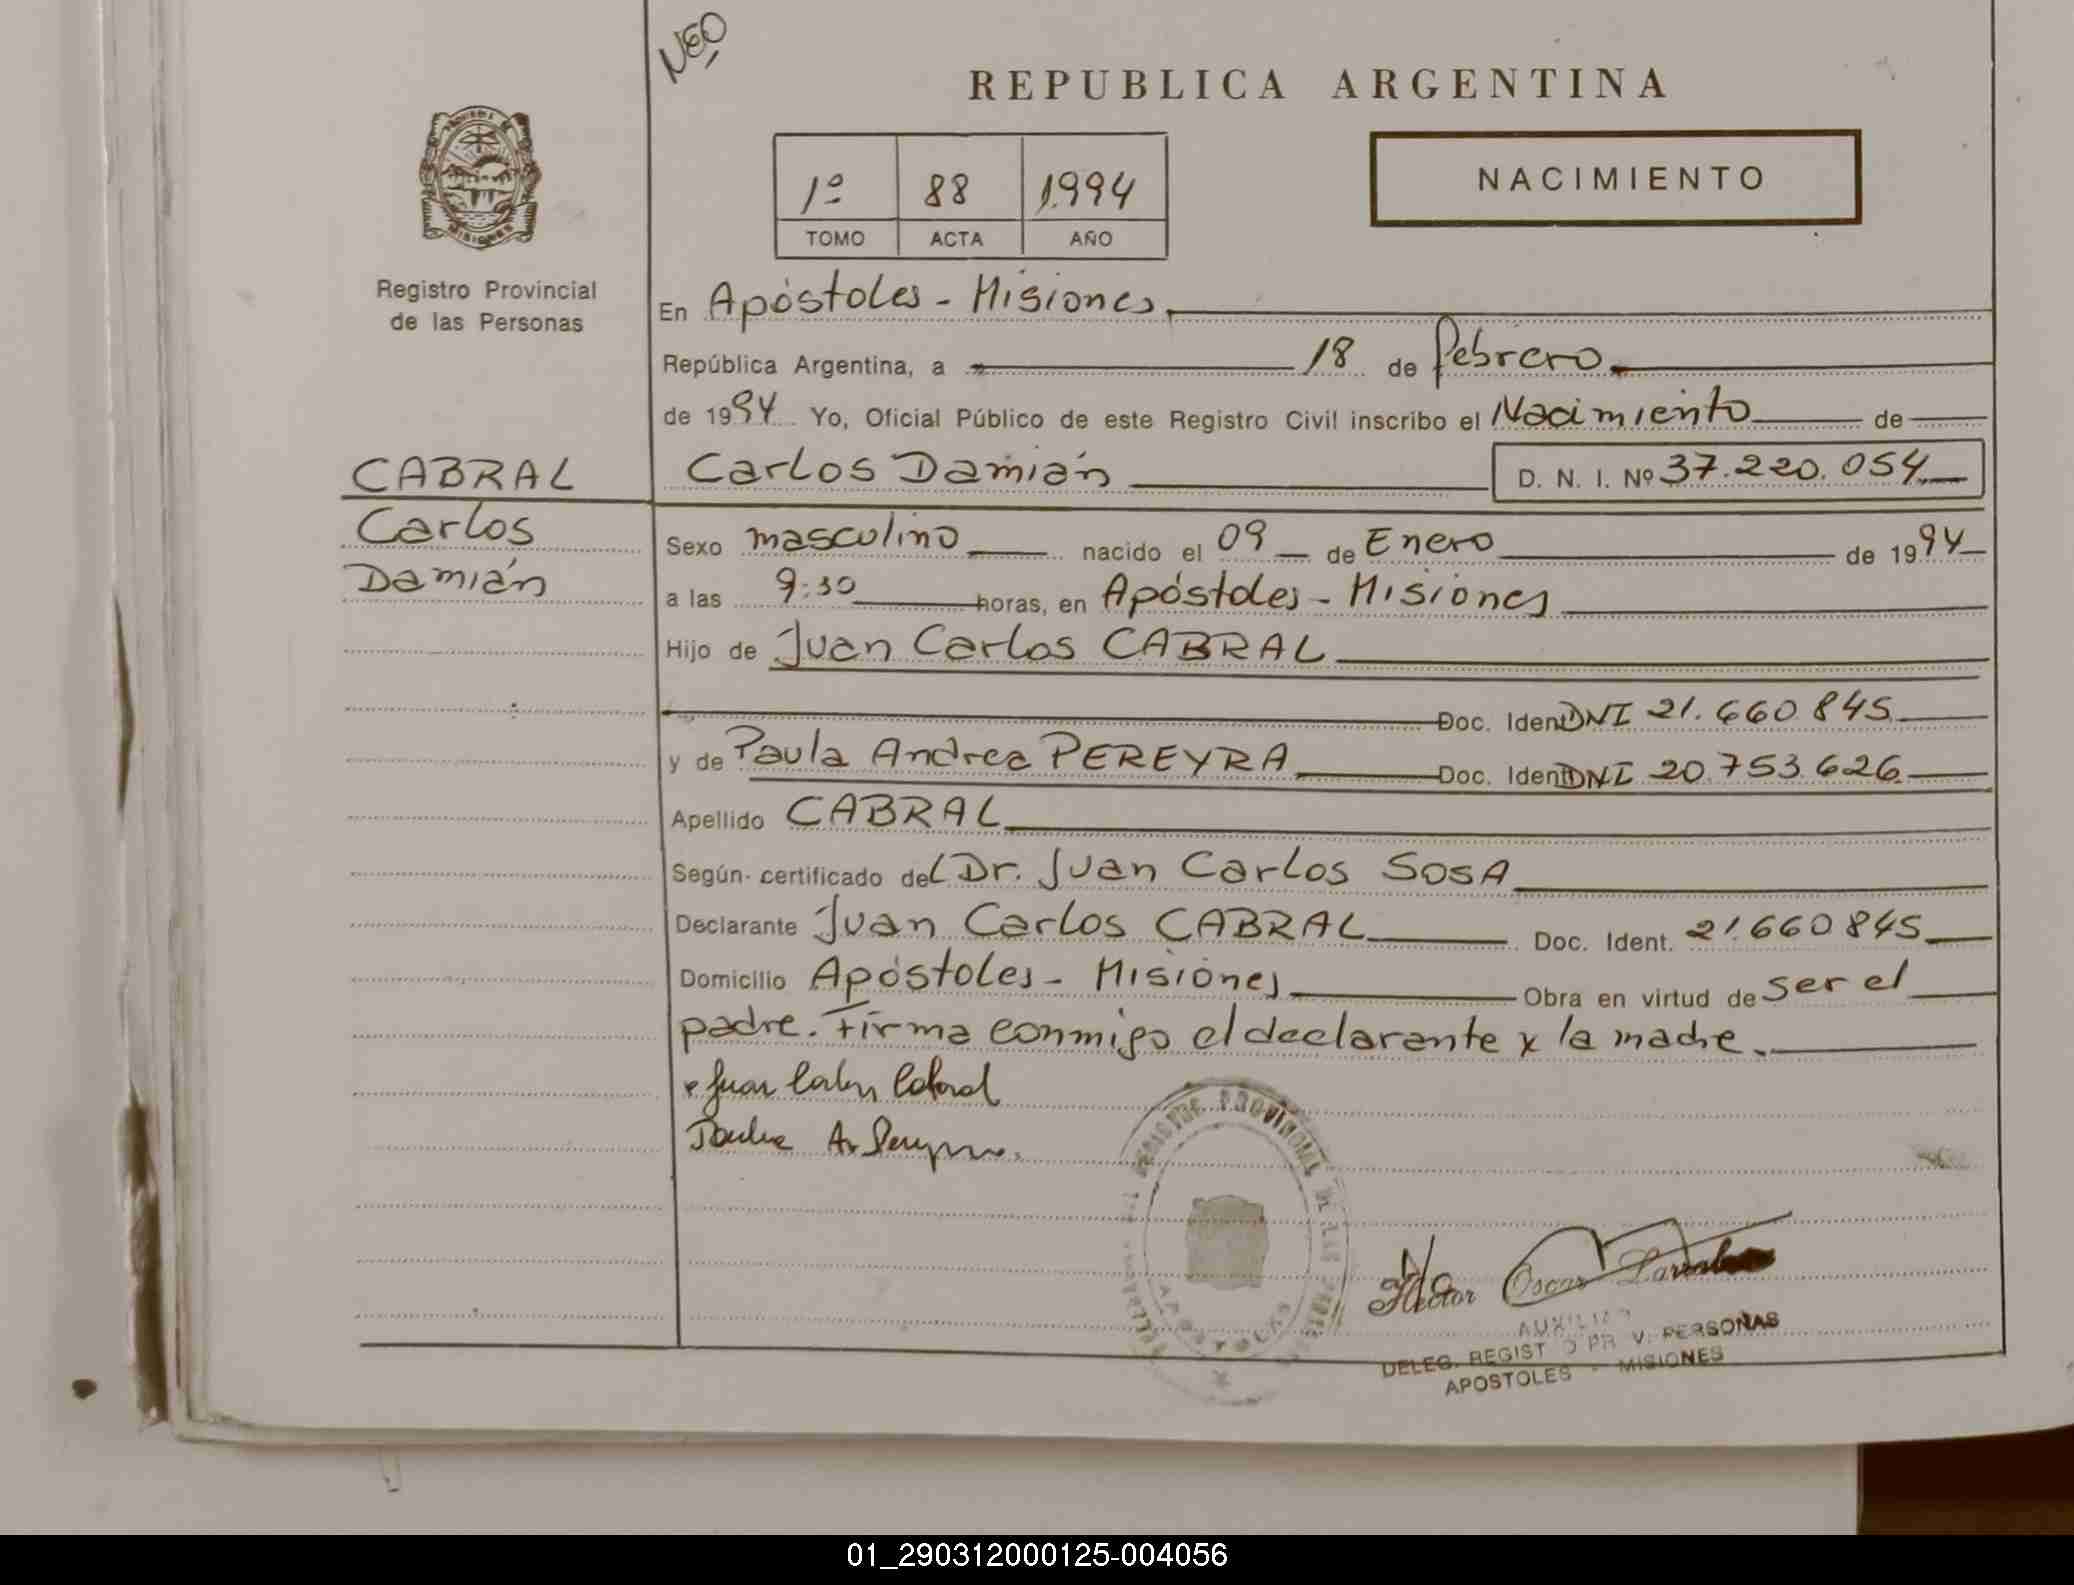 NEO
REPUBLICA ARGENTINA
1º 88 1994
TOMO ACTA AÑO
NACIMIENTO
MISIONES
Registro Provincial
de las Personas
En Apóstoles - Misiones
República Argentina, a 18 de febrero
de 1994 Yo, Oficial Público de este Registro Civil inscribo el Nacimiento de
CABRAL
Carlos
Damián
Carlos Damián D. N. I. Nº 37.220.054
Sexo masculino nacido el 09 de Enero de 1994
a las 9:30 horas, en Apóstoles - Misiones
Hijo de Juan Carlos CABRAL
Doc. Ident DNI 21.660.845
y de Paula Andrea PEREYRA Doc. Ident DNI 20.753.626
Apellido CABRAL
Según certificado del Dr. Juan Carlos SOSA
Declarante Juan Carlos CABRAL Doc. Ident. 21.660.845
Domicilio Apóstoles - Misiones Obra en virtud de ser el
padre. Firma conmigo el declarante y la madre.
Juan Carlos Cabral
Paula A. Pereyra
REGISTRO PROVINCIAL DE LAS PERSONAS
APOSTOLES
Hector Oscar
AUXILIAR
DELEG. REGISTRO PROV. PERSONAS
APOSTOLES - MISIONES
01_290312000125-004056